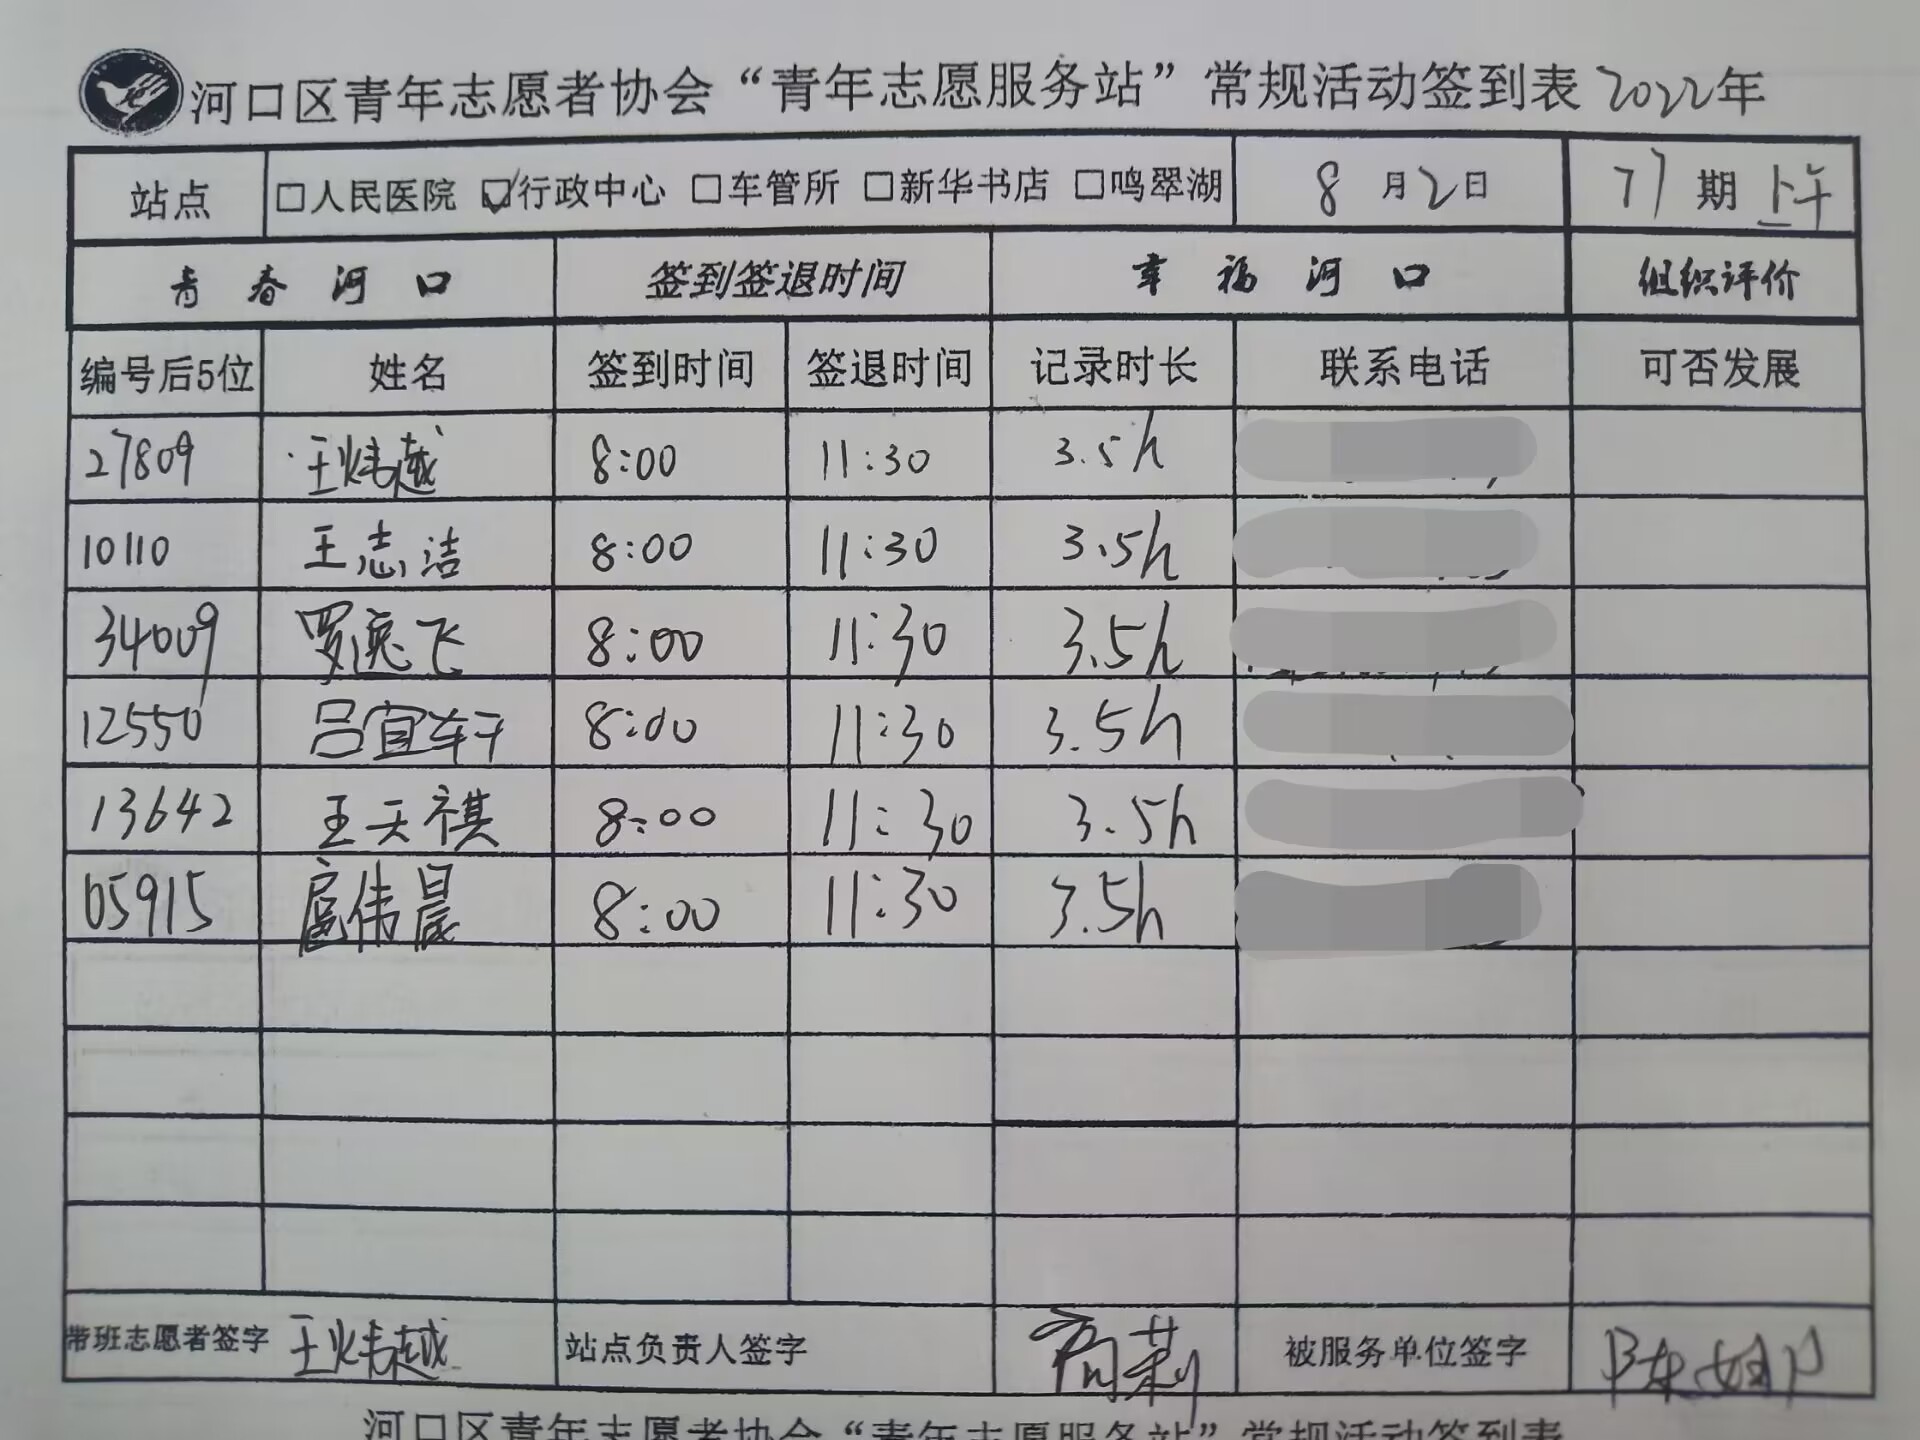 河口区青年志愿者协会“青年志愿服务站”常规活动签到表 2022年
站点 □人民医院 ☑行政中心 □车管所 □新华书店 □鸣翠湖 8月2日 77期 上午
青春河口 签到签退时间 幸福河口 组织评价
编号后5位 姓名 签到时间 签退时间 记录时长 联系电话 可否发展
27809 王炜越 8:00 11:30 3.5h
10110 王志洁 8:00 11:30 3.5h
34009 罗逸飞 8:00 11:30 3.5h
12550 吕宜轩 8:00 11:30 3.5h
13642 王天祺 8:00 11:30 3.5h
05915 扈伟晨 8:00 11:30 3.5h
带班志愿者签字 王炜越 站点负责人签字 被服务单位签字
河口区青年志愿者协会“青年志愿服务站”常规活动签到表